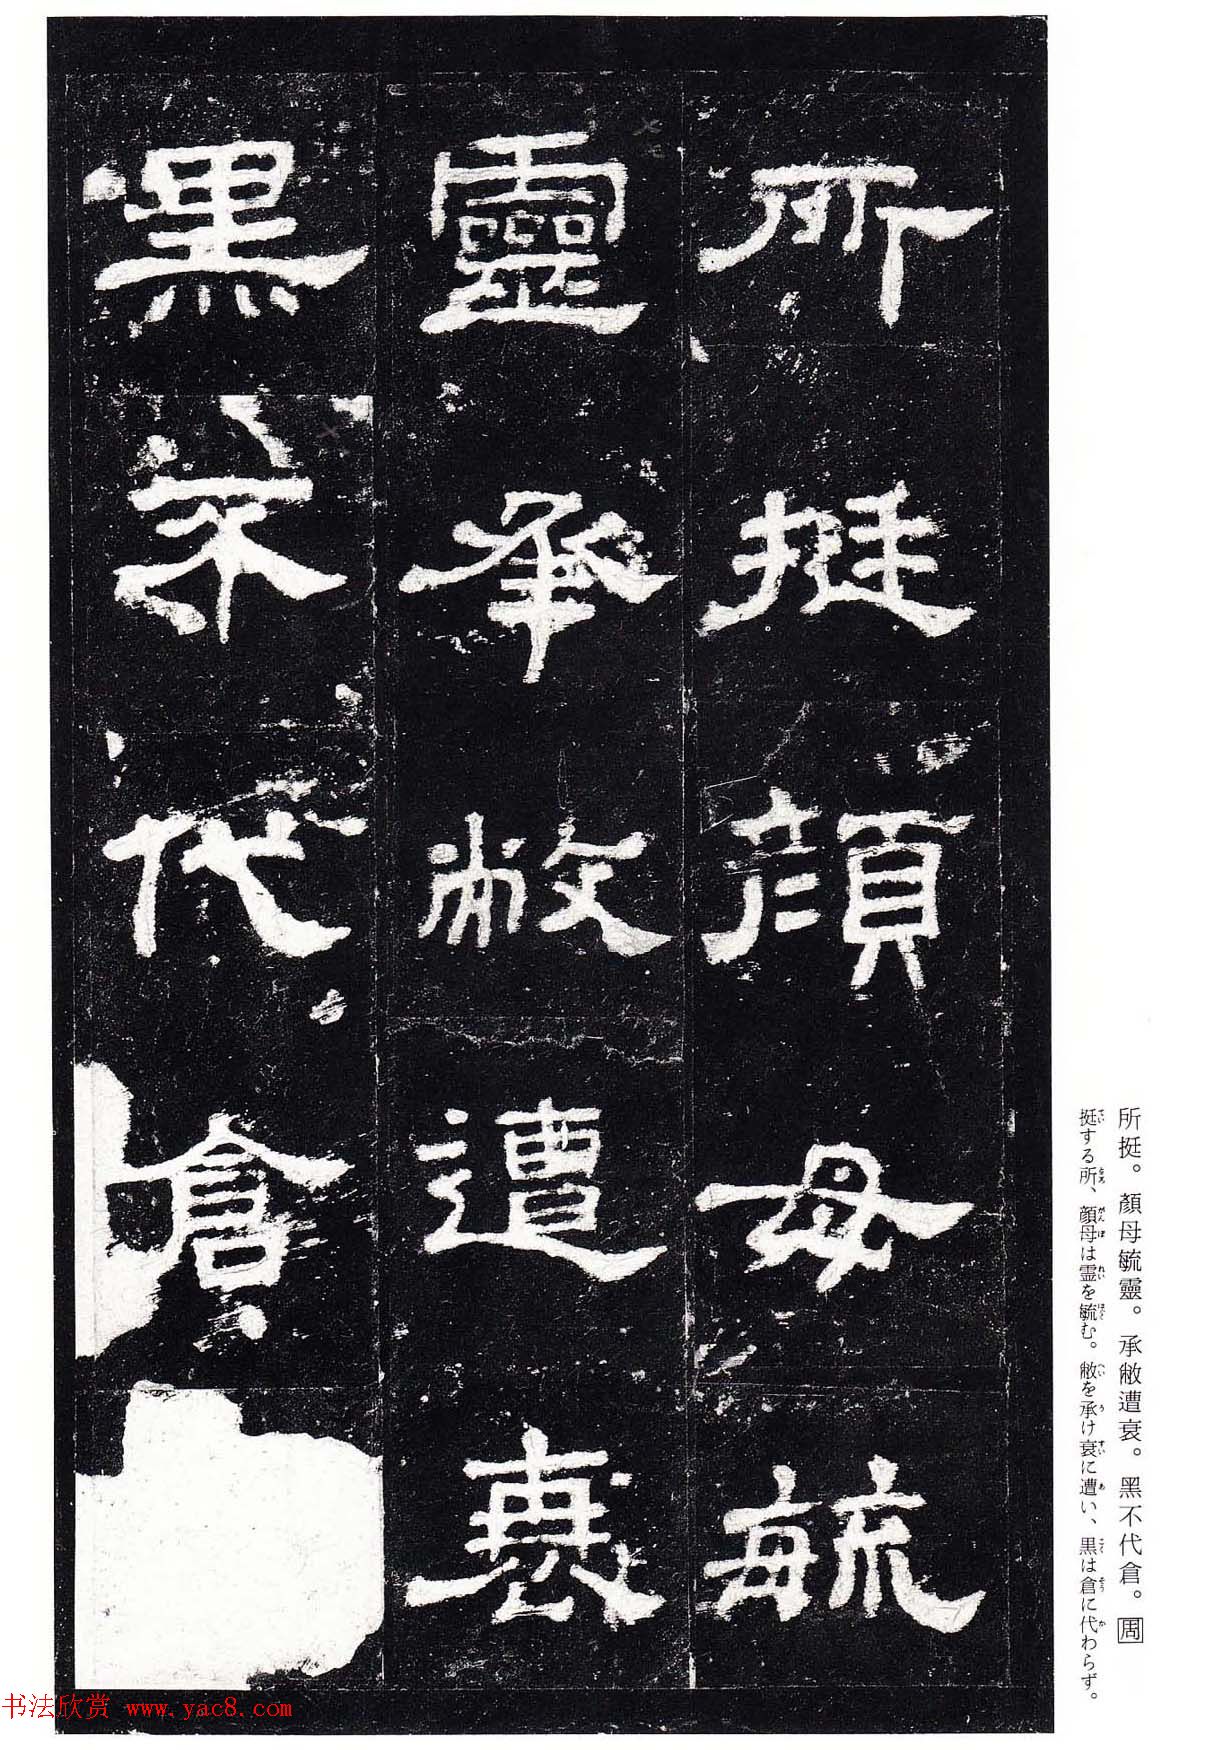 所挺顏母毓
靈承敝遭衰
黑不代倉
所挺。顏母毓靈。承敝遭衰。黑不代倉。周
挺する所、顔母は霊を毓む。敝を承け衰に遭い、黒は倉に代わらず。
书法欣赏 www.yac8.com